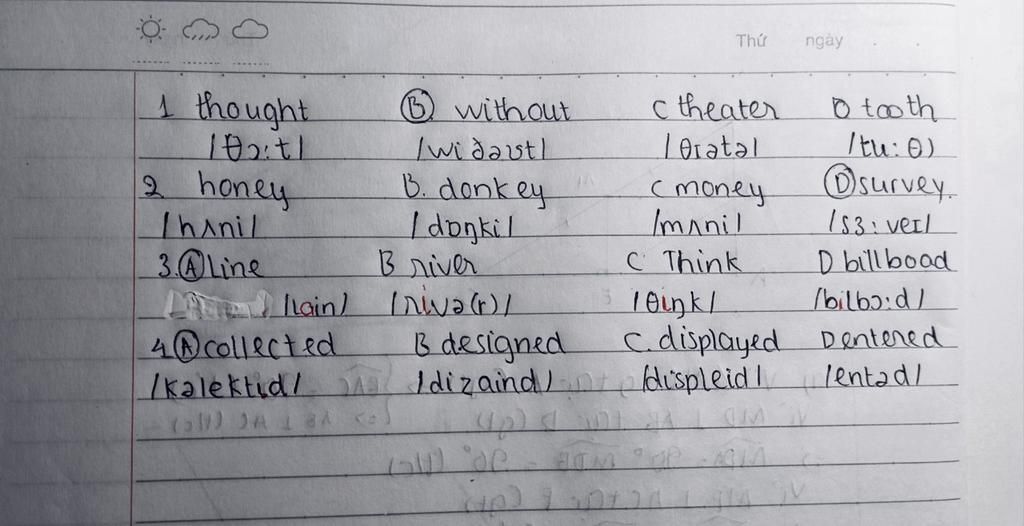 Thứ ngày
1 thought Ⓑ without C theater D tooth
/θɔ:t/ /wiðaʊt/ /θɪətə/ /tu:θ/
2 honey B. donkey C money Ⓓ survey
/hʌni/ /dɒŋki/ /mʌni/ /sɜ:veɪ/
3. Ⓐ line B river C Think D billboad
/lain/ /rivə(r)/ /θiŋk/ /bilbɔ:d/
4 Ⓐ collected B designed C. displayed D entered
/kəlektid/ /dizaind/ /displeid/ /entəd/